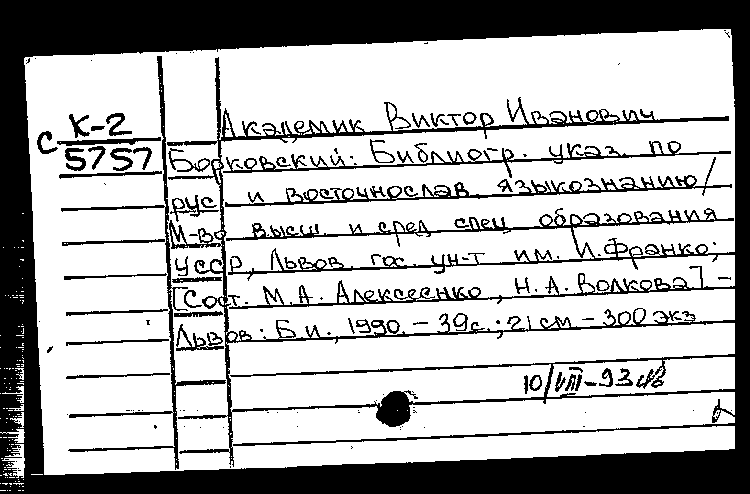 Академик Виктор Иванович
с К-2
5757
Борковский: Библиогр. указ. по
рус. и восточнослав. языкознанию/
М-во высш. и сред. спец. образования
УССР, Львов. гос. ун-т им. И.Франко;
[Сост. М.А. Алексеенко, Н.А. Волкова]. -
Львов: Б.и., 1990. - 39с.; 21 см - 300 экз
10/VIII-93